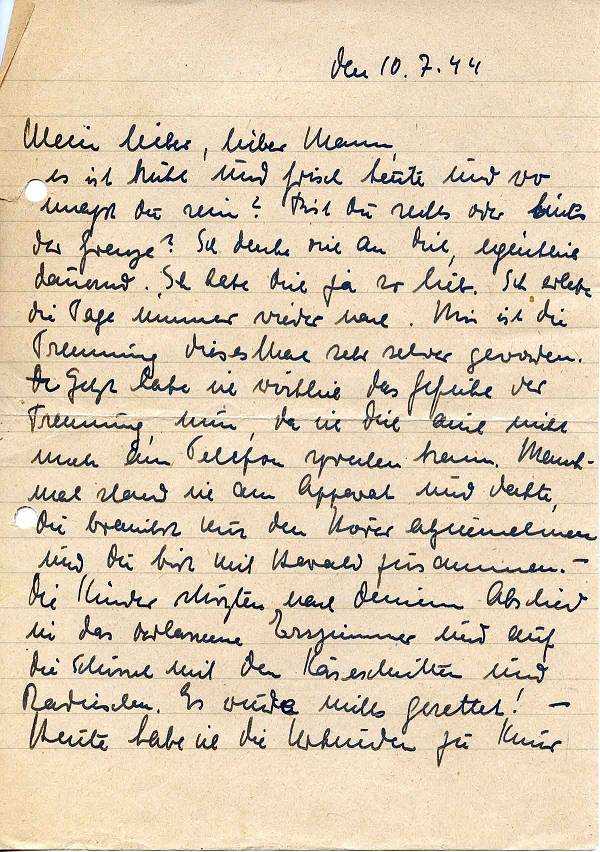 den 10.7.44
Mein lieber, lieber Mann,
es ist kühl und frisch heute und wo
magst du sein? Bist du rechts oder links
der Grenze? Ich denke viel an dich, eigentlich
dauernd. Ich habe dich ja so lieb. Ich erlebe
die Tage immer wieder nach. Mir ist die
Trennung dieses Mal sehr schwer geworden.
Jetzt habe ich wirklich das Gefühl der
Trennung, nun, da ich dich auch nicht
mehr am Telefon sprechen kann. Manch-
mal stand ich am Apparat und dachte,
du brauchst nur den Hörer abzunehmen
und du bist mit Harald zusammen. –
Die Kinder stürzten nach deinem Abschied
in das verlassene Esszimmer und auf
die Schüssel mit den Käseschnitten und
Radieschen. Es wurde nichts gerettet! –
Heute habe ich die Urkunden zu